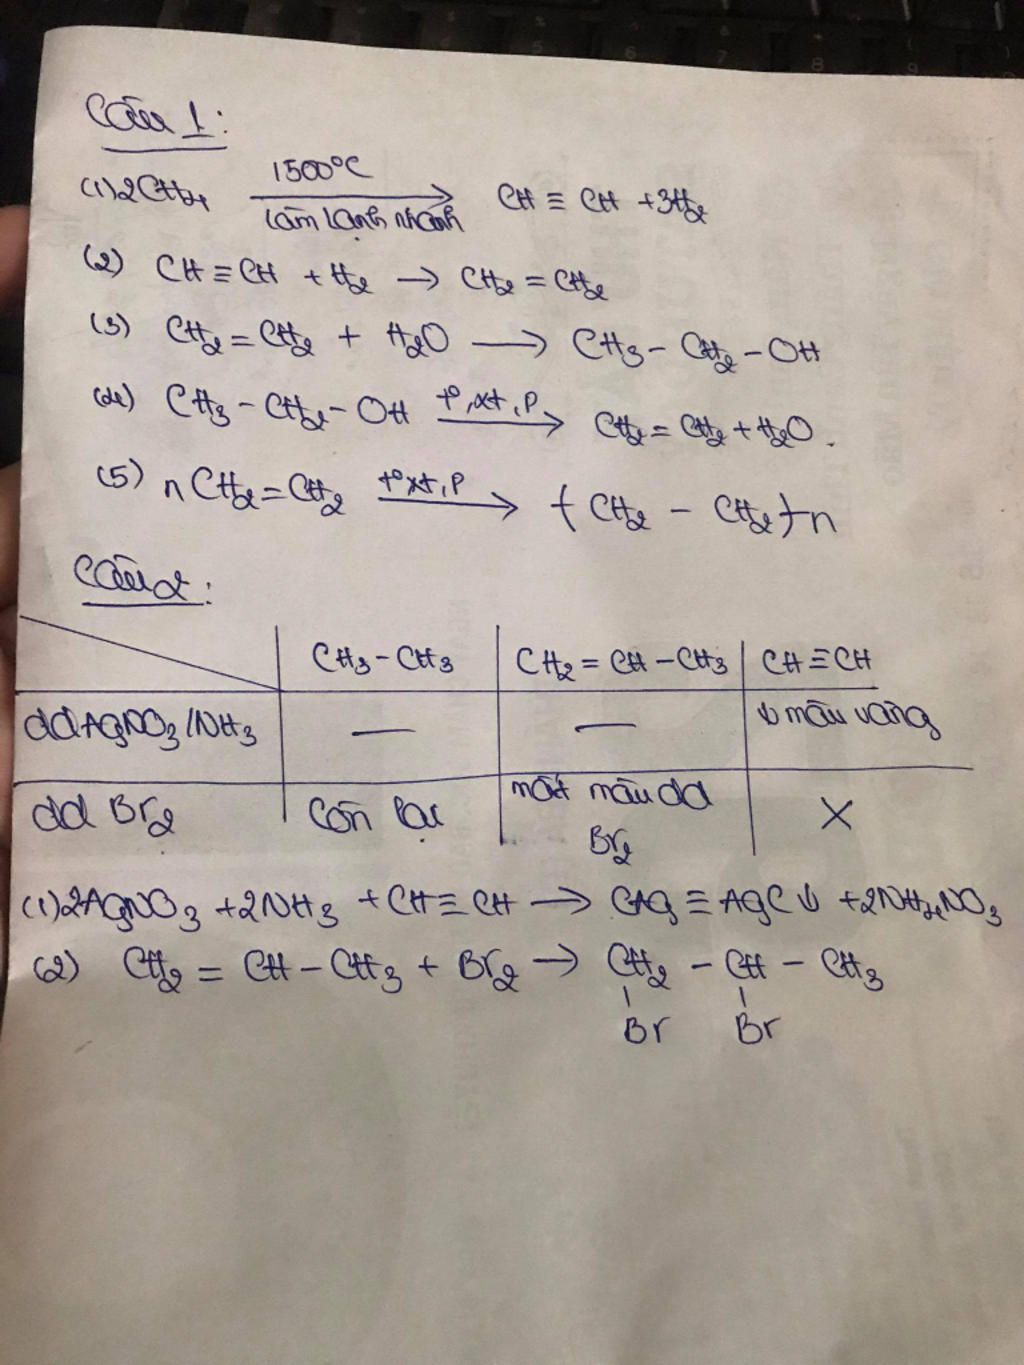 Câu 1:
(1) 2CH4 1500°C làm lạnh nhanh → CH ≡ CH + 3H2
(2) CH ≡ CH + H2 → CH2 = CH2
(3) CH2 = CH2 + H2O → CH3 - CH2 - OH
(4) CH3 - CH2 - OH t°, xt, P → CH2 = CH2 + H2O.
(5) nCH2 = CH2 t° xt, P → ( CH2 - CH2 )n
Câu 2:
CH3 - CH3 CH2 = CH - CH3 CH ≡ CH
dd AgNO3/NH3 — — ↓ màu vàng
dd Br2 Còn lại mất màu dd Br2 X
(1) 2AgNO3 + 2NH3 + CH ≡ CH → CAg ≡ AgC ↓ + 2NH4NO3
(2) CH2 = CH - CH3 + Br2 → CH2 - CH - CH3
Br Br